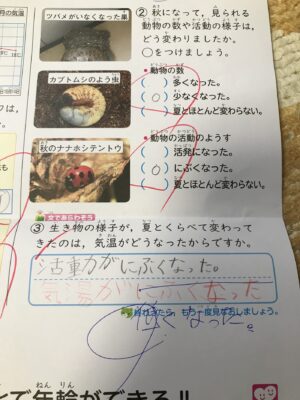 月の気温
ツバメがいなくなった巣
カブトムシのよう虫
秋のナナホシテントウ
② 秋になって，見られる
動物の数や活動の様子は，
どう変わりましたか。
○をつけましょう。
・動物の数
( ) 多くなった。
(○) 少なくなった。
( ) 夏とほとんど変わらない。
・動物の活動のようす
( ) 活発になった。
(○) にぶくなった。
( ) 夏とほとんど変わらない。
文であらわそう
③ 生き物の様子が，夏とくらべて変わって
きたのは，気温がどうなったからですか。
活動力がにぶくなった。
気温がにぶくなった
低くなった。
もう一度見なおしましょう。
とで年輪ができる!!